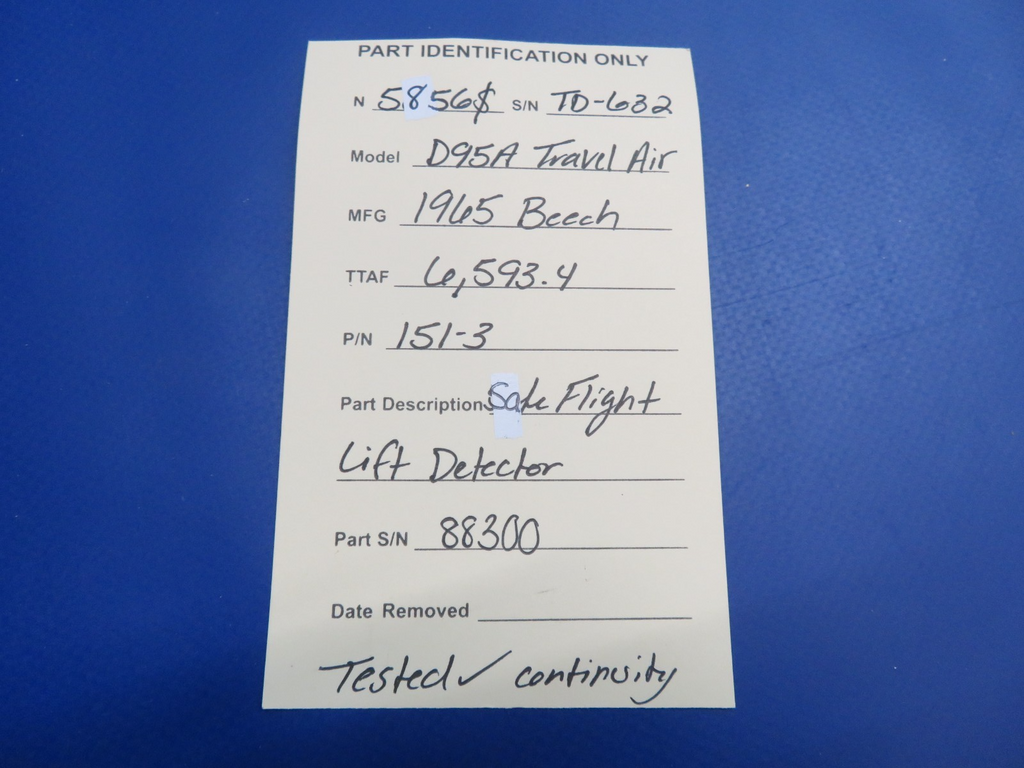 PART IDENTIFICATION ONLY
N 5856S S/N TD-632
Model D95A Travel Air
MFG 1965 Beech
TTAF 6,593.4
P/N 151-3
Part Description Safe Flight
Lift Detector
Part S/N 88300
Date Removed
Tested ✓ continuity